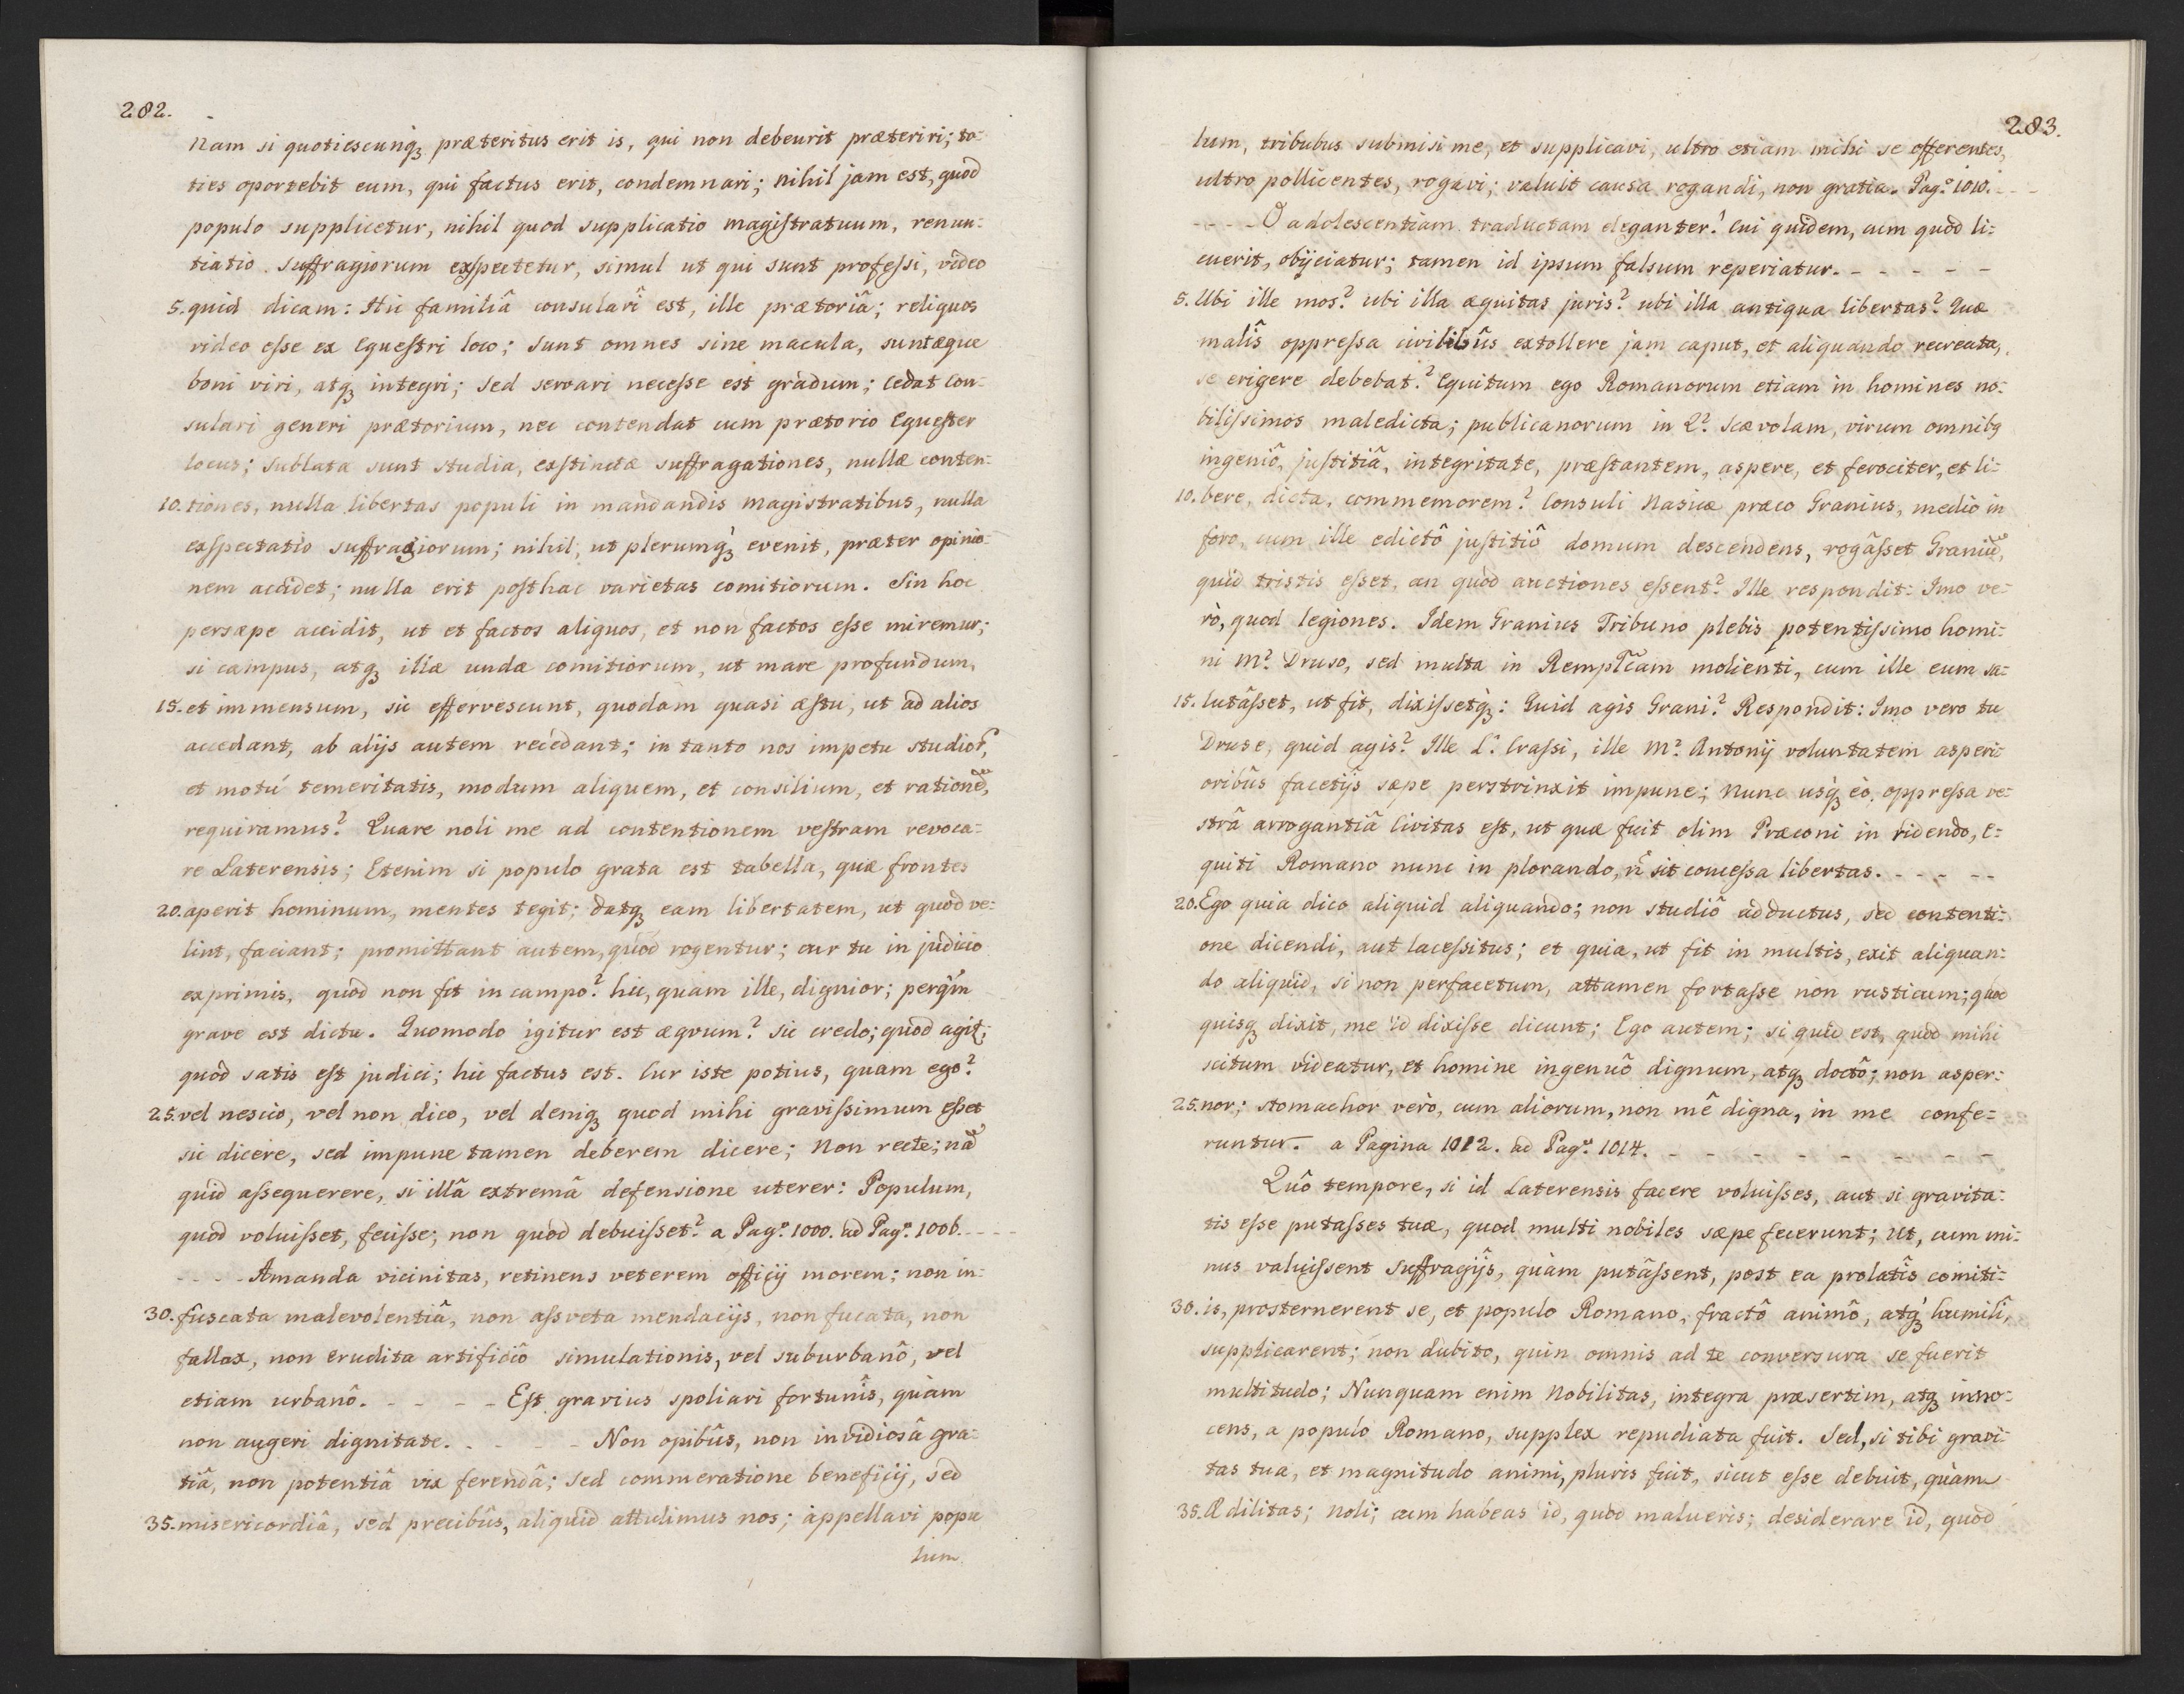 282.
Nam si quotiescunq́ꝫ præteritus erit is, qui non debeurit præteriri; to-
ties oportebit eum, qui factus erit, condemnari; nihil jam est, quod
populo supplicetur, nihil quod supplicatio magistratuum, renun-
tiatio suffragiorum exspectetur, simul ut qui sunt professi, video
5. quid dicam: Hic familiâ consulari est, ille prætoriâ; reliquos
video esse ex equestri loco; sunt omnes sine macula, sunt æque
boni viri, atqꝫ integri; sed servari necesse est gradum; cedat con-
sulari generi prætorium, nec contendat cum prætorio equester
locus; sublata sunt studia, exstinctæ suffragationes, nullæ conten-
10. tiones, nulla libertas populi in mandandis magistratibus, nulla
exspectatio suffragiorum; nihil, ut plerumq́ꝫ evenit, præter opinio-
nem accidet; nulla erit posthac varietas comitiorum. Sin hoc
persæpe accidit, ut et factos aliquos, et non factos esse miremur;
si campus, atqꝫ illæ undæ comitiorum, ut mare profundum,
15. et immensum, sic effervescunt, quodam quasi æstu, ut ad alios
accedant, ab alijs autem recedant; in tanto nos impetu studioꝝ,
et motú temeritatis, modum aliquem, et consilium, et rationē,
requiramus? Quare noli me ad contentionem vestram revoca-
re Laterensis; Etenim si populo grata est tabella, quæ frontes
20. aperit hominum, mentes tegit; datqꝫ eam libertatem, ut quod ve-
lint, faciant; promittant autem, quod rogentur; cur tu in judicio
exprimis, quod non fit in campo? hic, quam ille, dignior; perq́m
grave est dictu. Quomodo igitur est ægvum? sic credo; quod agit;
quod satis est judici; hic factus est. Cur iste potius, quam ego?
25. vel nescio, vel non dico, vel deniqꝫ quod mihi gravissimum esset
sic dicere, sed impune tamen deberem dicere; Non recte; nā
quid assequerere, si illâ extremâ defensione uterer: Populum,
quod voluisset, fecisse; non quod debuisset? a Pag.ª 1000. ad Pag.ª 1006.----
---- Amanda vicinitas, retinens veterem officij morem; non in-
30. fuscata malevolentiâ, non assveta mendacijs, non fucata, non
fallax, non erudita artificiô simulationis, vel suburbanô, vel
etiam urbanô. - - - - Est gravius spoliari fortunîs, quàm
non augeri dignitate. - - - - - Non opibûs, non invidiosâ gra-
tiâ, non potentiâ vix ferendâ; sed commeratione beneficij, sed
35. misericordiâ, sed precibûs, aliquid attulimus nos; appellavi popu
lum
283.
lum, tribubus submisi me, et supplicavi, ultro etiam mihi se offerentes,
ultro pollicentes, rogavi; valuit causa rogandi, non gratia. Pag.ª 1010. - -
---- O adolescentiam traductam eleganter! Cui quidem, cum quod li-
cuerit, obijciatur; tamen id ipsum falsum reperiatur. - - - - -
5. Ubi ille mos? ubi illa æquitas juris? ubi illa antiqua libertas? Quæ
malîs oppressa civilibûs extollere jam caput, et aliquando recreata,
se erigere debebat? Equitum ego Romanorum etiam in homines no-
bilissimos maledicta; publicanorum in Q? Scævolam, virum omnibꝫ
ingeniô, justitiâ, integritate, præstantem, aspere, et ferociter, et li-
10. bere, dicta, commemorem? Consuli Nasicæ præco Granius, medio in
foro, cum ille edictô justitiô domum descendens, rogâsset Graniū,
quid tristis esset, an quòd auctiones essent? Ille respondit: Imo ve-
rò, quod legiones. Idem Granius Tribuno plebis potentissimo homi-
ni M? Druso, sed multa in Remplĉam molienti, cum ille eum sa-
15. lutâsset, ut fit, dixissetq́ꝫ: Quid agis Grani? Respondit: Imo vero tu
Druse, quid agis? Ille L. Crassi, ille M? Antonij voluntatem asperi-
oribûs facetijs sæpe perstrinxit impune; Nunc usq́ꝫ eò, oppressa ve-
strâ arrogantiâ Civitas est, ut quæ fuit olim Præconi in ridendo, e-
quiti Romano nunc in plorando, ñ sit concessa libertas. - - - - -
20. Ego quia dico aliquid aliquando; non studiô adductus, sed contenti-
one dicendi, aut lacessitus; et quia, ut fit in multis, exit aliquan-
do aliquid, si non perfacetum, attamen fortasse non rusticum; quod
quisqꝫ dixit, me id dixisse dicunt; Ego autem; si quid est, quod mihi
scitum videatur, et homine ingenuô dignum, atqꝫ doctô; non asper-
25. nor; stomachor verò, cum aliorum, non mê digna, in me confe-
runtur. a Pagina 1012. ad Pag.ª 1014. - - - - - - - -
Quô tempore, si id Laterensis facere voluisses, aut si gravita-
tis esse putasses tuæ, quod multi nobiles sæpe fecerunt; ut, cum mi-
nus valuissent suffragijs, quàm putâssent, post ea prolatîs comiti-
30. is, prosternerent se, et populo Romano, fractô animô, atq́ꝫ humilî,
supplicarent; non dubito, quin omnis ad te conversura se fuerit
multitudo; Nunquam enim nobilitas, integra præsertim, atqꝫ inno-
cens, a populo Romano, supplex repudiata fuit. Sed, si tibi gravi-
tas tua, et magnitudo animi, pluris fuit, sicut esse debuit, quàm
35. Ædilitas; noli; cum habeas id, quod malueris; desiderare id, quod